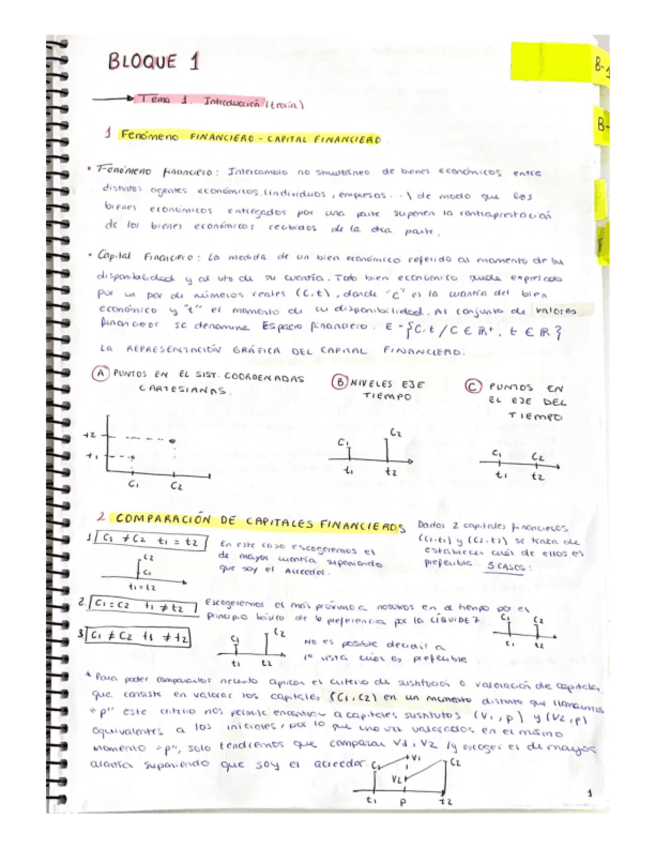 BLOQUE 1
B-1
Tema 1. Introducción (teoría)
B-
1 Fenómeno FINANCIERO - CAPITAL FINANCIERO
• Fenómeno financiero: Intercambio no simultáneo de bienes económicos entre
distintos agentes económicos (individuos, empresas...) de modo que los
bienes económicos entregados por una parte suponen la contraprestación
de los bienes económicos recibidos de la otra parte.
• Capital Financiero: La medida de un bien económico referido al momento de su
disponibilidad y al vto de su cuantía. Todo bien económico queda expresado
por un par de números reales (C,t), donde "c" es la cuantía del bien
económico y "t" el momento de su disponibilidad. Al conjunto de valores
financieros se denomina Espacio financiero. E = {C,t / C ∈ R+, t ∈ R}
LA REPRESENTACIÓN GRÁFICA DEL CAPITAL FINANCIERO.
A PUNTOS EN EL SIST. COORDENADAS
CARTESIANAS.
B NIVELES EJE
TIEMPO
C PUNTOS EN
EL EJE DEL
TIEMPO
t2
t1
C1 C2
C1 C2
t1 t2
C1 C2
t1 t2
2 COMPARACIÓN DE CAPITALES FINANCIEROS
Dados 2 capitales financieros
(C1,t1) y (C2,t2) se trata de
establecer cuál de ellos es
preferible. 3 CASOS:
1 C1 ≠ C2 t1 = t2
En este caso escogeremos el
de mayor cuantía suponiendo
que soy el Acreedor.
C2
C1
t1 = t2
2. C1 = C2 t1 ≠ t2
Escogeremos el más próximo a nosotros en el tiempo por el
principio básico de preferencia por la LIQUIDEZ
C1 C2
t1 t2
3 C1 ≠ C2 t1 ≠ t2
C1 C2
t1 t2
No es posible decidir a
1ª vista cuál es preferible
* Para poder compararlos necesito aplicar el criterio de sustitución o valoración de capitales,
que consiste en valorar los capitales (C1, C2) en un momento distinto que llamaremos
"p" este criterio nos permite encontrar a capitales sustitutos (V1, p) y (V2, p)
equivalentes a los iniciales, por lo que una vez valorados en el mismo
momento "p", solo tendremos que comparar V1, V2 y escoger el de mayor
cuantía suponiendo que soy el acreedor
C1 V1
V2 C2
t1 p t2
1